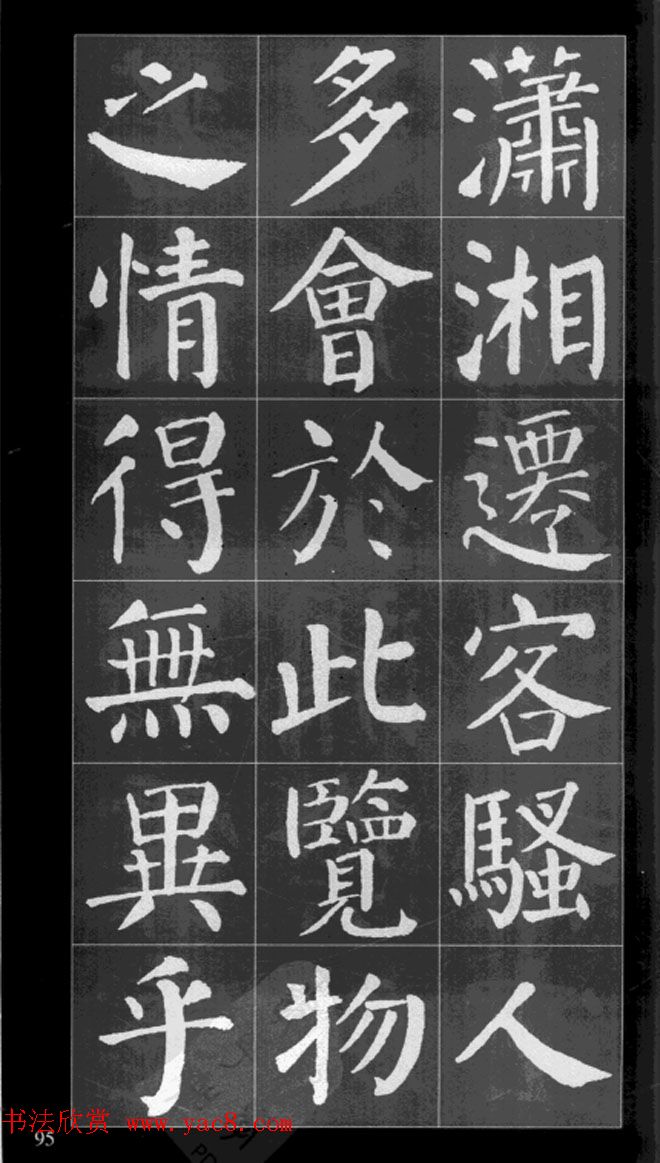 瀟湘遷客騷人
多會於此覽物
之情得無異乎
书法欣赏 www.yac8.com
95